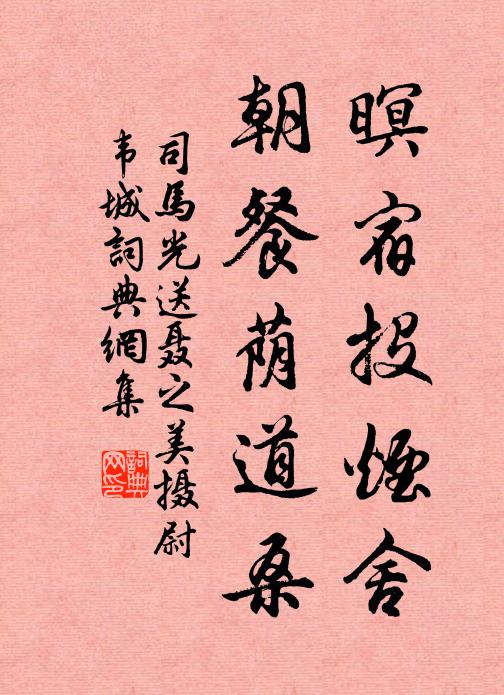 暝宿投煙舍
朝餐荫道桑
司馬光送聂之美摄尉
韦城詞典網集
詞典网印